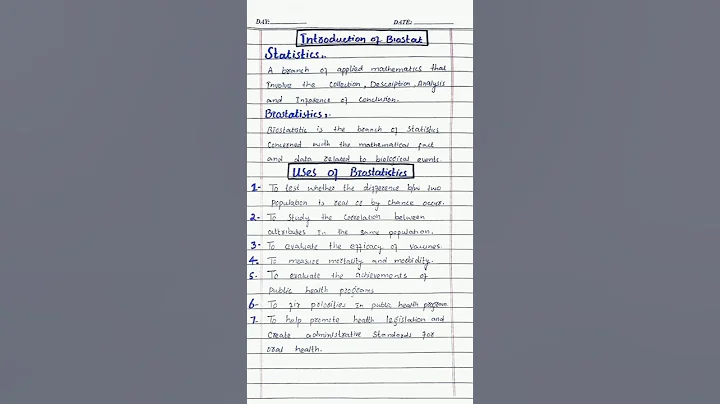 DAY: DATE:
Introduction of Biostat
Statistics:-
A branch of applied mathematics that
involve the collection, Description, Analysis
and Inference of conclusion.
Biostatistics:-
Biostatistic is the branch of statistics
concerned with the mathematical fact
and data related to biological events.
Uses of Biostatistics
1- To test whether the difference b/w two
population is real or by chance occur.
2- To study the correlation between
attributes in the same population.
3- To evaluate the efficacy of vaccines.
4- To measure mortality and morbidity.
5- To evaluate the achievements of
public health programs
6- To fix priorities in public health program
7- To help promote health legislation and
create administrative standards for
oral health.